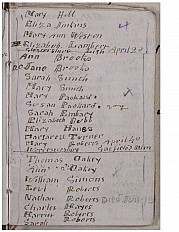 Mary Hill
Eliza Jinkins
Mary Ann Weston
Elizabeth Lambert
14th April 20
Ann Brooks
Jane Brooks
Sarah Smith
Mary Smith
Mary Packard
Susan Packard
Sarah Embary
Elizabeth Webb
Mary Hains
Margaret Turner
Mary Roberts April 40
Thomas Oakey
Ann Oakey
William Simons
Levi Roberts
Nathan Roberts
Charles Hayes
Harriet Roberts
Sarah Roberts